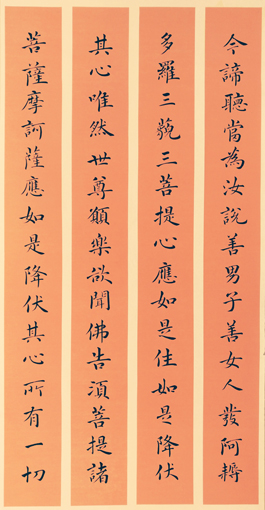 今諦聽當為汝說善男子善女人發阿耨
多羅三藐三菩提心應如是住如是降伏
其心唯然世尊願樂欲聞佛告須菩提諸
菩薩摩訶薩應如是降伏其心所有一切